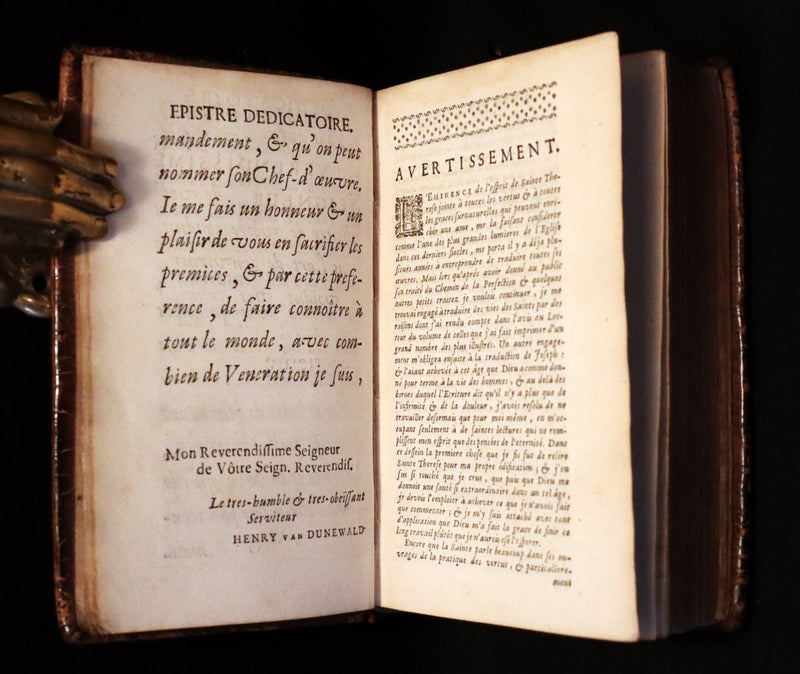 EPISTRE DEDICATOIRE.
mandement, & qu'on peut
nommer son Chef-d'œuvre.
Ie me fais un honneur & un
plaisir de vous en sacrifier les
premices, & par cette prefe-
rence, de faire connoître à
tout le monde, avec com-
bien de Veneration je suis,
Mon Reverendissime Seigneur
de Vôtre Seign. Reverendis.
Le tres-humble & tres-obeissant
Serviteur
HENRY VAN DUNEWALD
AVERTISSEMENT.
L'EMINENCE de l'esprit de Sainte The-
rese jointe à toutes les vertus & à toutes
les graces surnaturelles qui peuvent enri-
chir une ame, me la faisant considerer
comme l'une des plus grandes lumieres de l'Eglise
dans ces derniers siecles, me porta il y a déja plu-
sieurs années à entreprendre de traduire toutes ses
œuvres. Mais lors qu'après avoir donné au public
son traité du Chemin de la Perfection & quelques
autres petits traitez je voulois continuer, je me
trouvai engagé à traduire des vies des Saints par des
raisons dont j'ai rendu compte dans l'avis au Lec-
teur du volume de celles que j'ai fait imprimer d'un
grand nombre des plus illustres. Un autre engage-
ment m'obligea ensuite à la traduction de Joseph:
& l'aiant achevée à cet âge que Dieu a comme don-
né pour terme à la vie des hommes, & au delà des
bornes duquel l'Ecriture dit qu'il n'y a plus que de
l'infirmité & de la douleur, j'avois resolu de ne
travailler desormais que pour moi même, en m'oc-
cupant seulement à de saintes lectures qui ne rem-
plissent mon esprit que des pensées de l'eternité. Dans
ce dessein la premiere chose que je fis fut de relire
Sainte Therese pour ma propre édification; & j'en
fus si touché que je crus, que puis que Dieu me
donnoit une santé si extraordinaire dans un tel âge,
je devois l'emploier à achever ce que je n'avois fait
que commencer; & je m'y suis attaché avec tant
d'application que Dieu m'a fait la grace de finir ce
long travail plûtôt que je n'aurois osé l'esperer.
Encore que la Sainte parle beaucoup dans ses ou-
vrages de la pratique des vertus, & particuliere-
ment